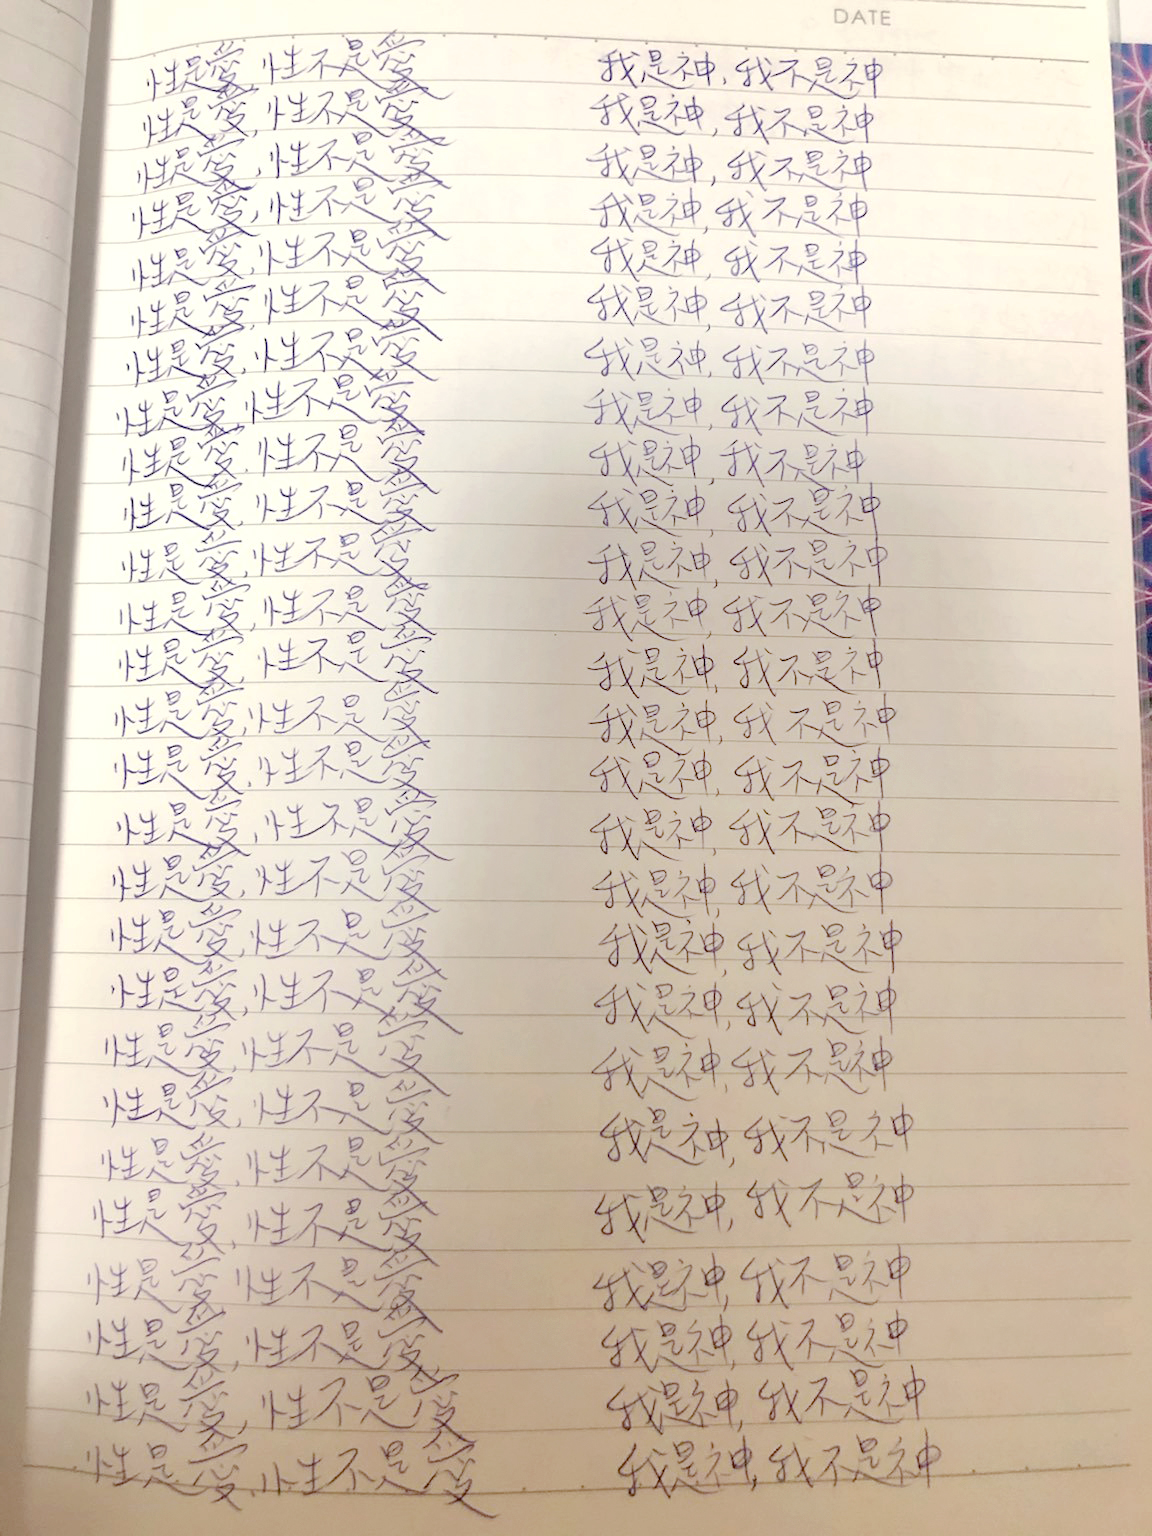 DATE
性是愛,性不是愛
性是愛,性不是愛
性是愛,性不是愛
性是愛,性不是愛
性是愛,性不是愛
性是愛,性不是愛
性是愛,性不是愛
性是愛,性不是愛
性是愛,性不是愛
性是愛,性不是愛
性是愛,性不是愛
性是愛,性不是愛
性是愛,性不是愛
性是愛,性不是愛
性是愛,性不是愛
性是愛,性不是愛
性是愛,性不是愛
性是愛,性不是愛
性是愛,性不是愛
性是愛,性不是愛
性是愛,性不是愛
性是愛,性不是愛
性是愛,性不是愛
性是愛,性不是愛
性是愛,性不是愛
性是愛,性不是愛
性是愛,性不是愛
我是神,我不是神
我是神,我不是神
我是神,我不是神
我是神,我不是神
我是神,我不是神
我是神,我不是神
我是神,我不是神
我是神,我不是神
我是神,我不是神
我是神,我不是神
我是神,我不是神
我是神,我不是神
我是神,我不是神
我是神,我不是神
我是神,我不是神
我是神,我不是神
我是神,我不是神
我是神,我不是神
我是神,我不是神
我是神,我不是神
我是神,我不是神
我是神,我不是神
我是神,我不是神
我是神,我不是神
我是神,我不是神
我是神,我不是神